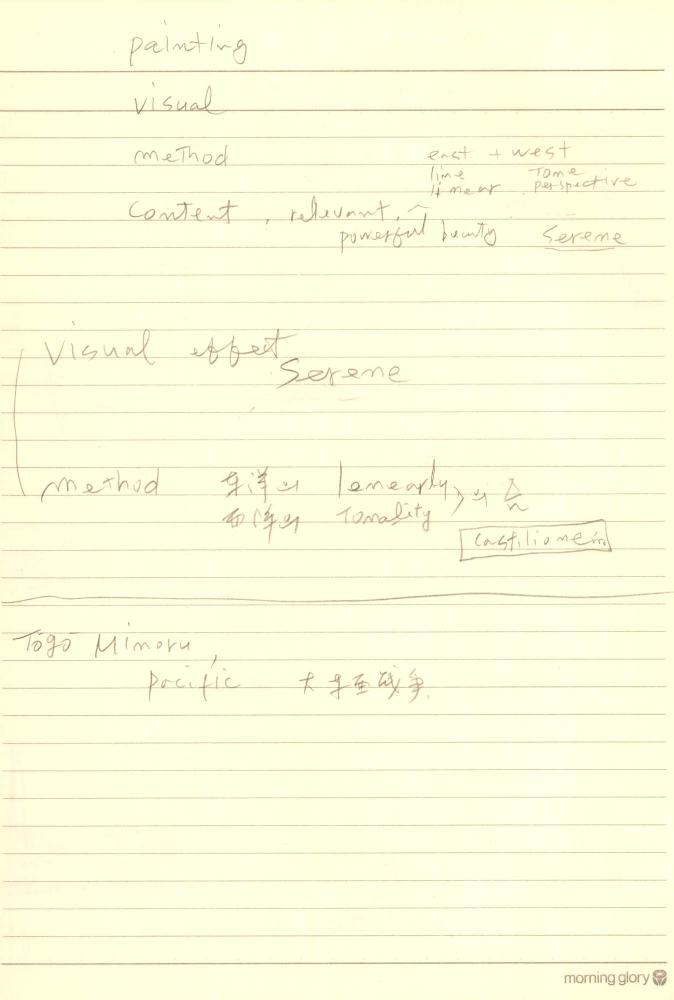 painting
visual
method
east + west
line Tone
linear perspective
content, relevant,
powerful beauty Serene
visual effect
Serene
method 东洋의
西洋의 Tonality
Castilione
Tōgō Minoru,
pacific 大东亜战争
morning glory